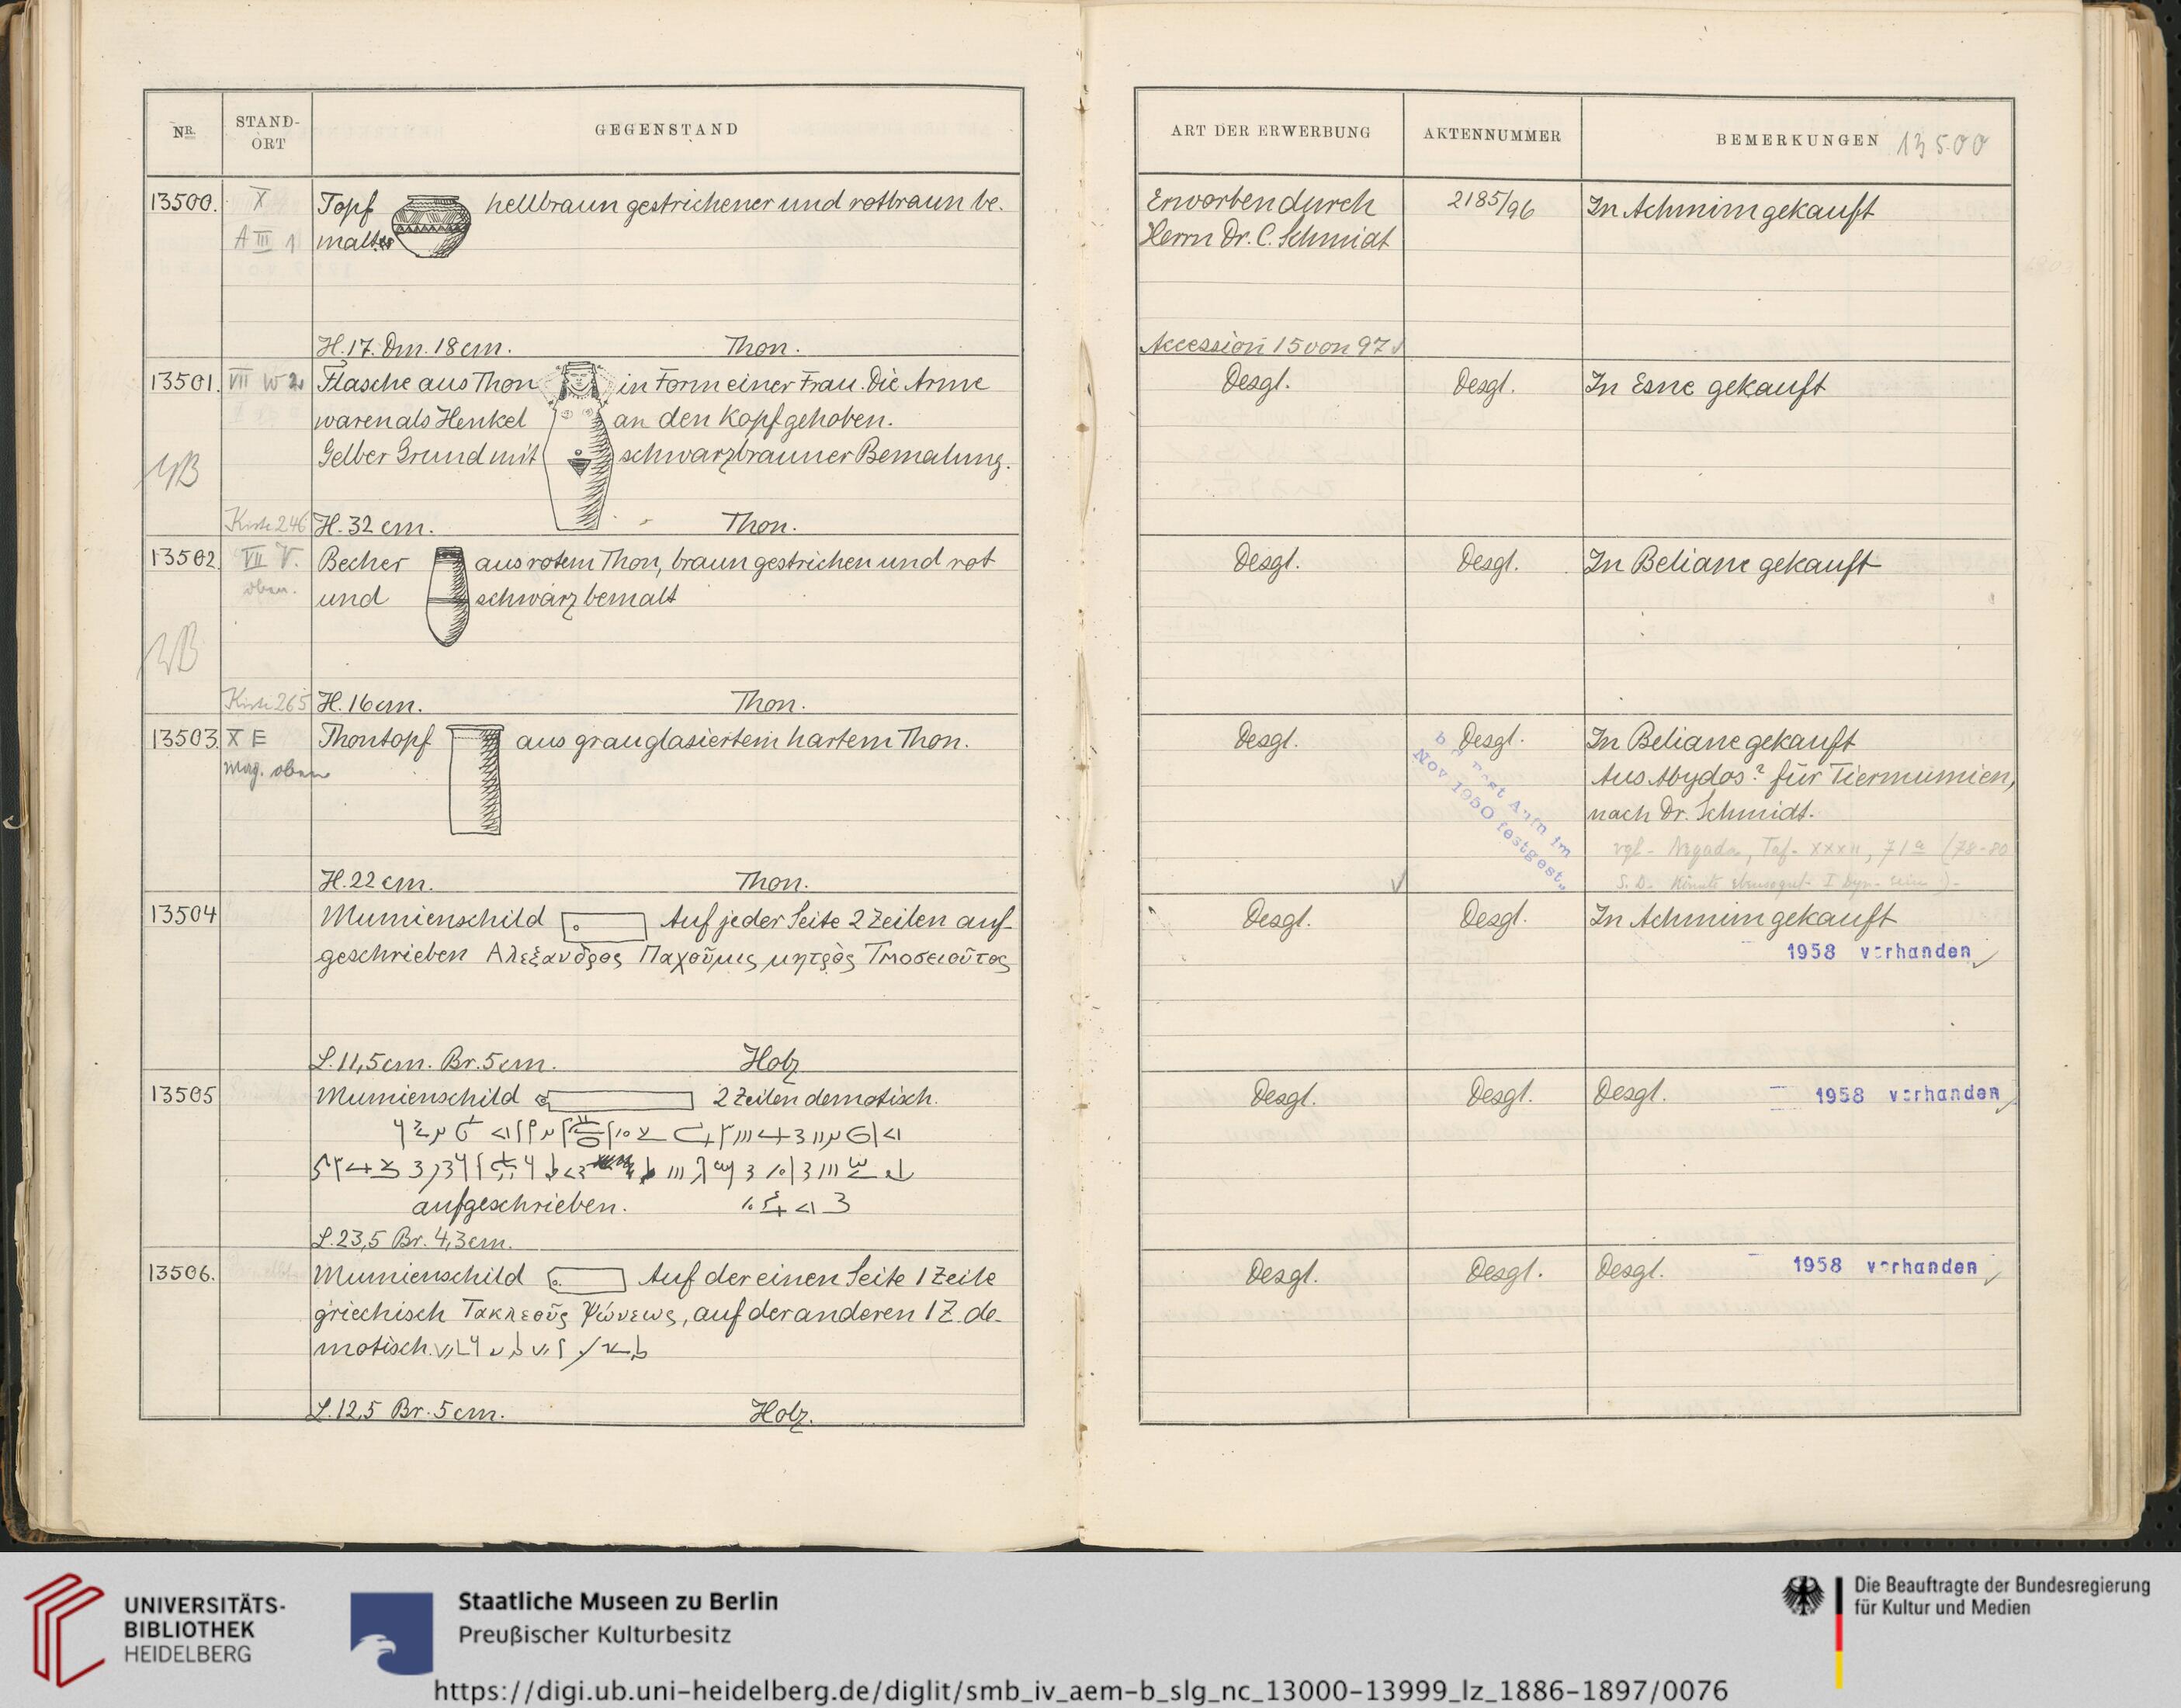 NR.
STAND-
ORT
GEGENSTAND
13500.
X
A III 1
Topf hellbraun gestrichener und rotbraun be-
malter
H. 17. Dm. 18 cm. Thon.
13501. VII W 2
Flasche aus Thon in Form einer Frau. Die Arme
waren als Henkel an den Kopf gehoben.
Gelber Grund mit schwarzbrauner Bemalung.
Kiste 246 H. 32 cm. Thon.
13502. VII V.
oben.
Becher aus rotem Thon, braun gestrichen und rot
und schwarz bemalt
Kiste 265 H. 16 cm. Thon.
13503 X E
Mag. oben
Thontopf aus grau glasiertem hartem Thon.
H. 22 cm. Thon.
13504
Mumienschild Auf jeder Seite 2 Zeilen auf-
geschrieben Αλεξανδρος Παχοῦμις μητρὸς Τμοσειοῦτος
L. 11,5 cm. Br. 5 cm. Holz
13505
Mumienschild 2 Zeilen demotisch.
aufgeschrieben.
L. 23,5 Br. 4,3 cm.
13506.
Mumienschild Auf der einen Seite 1 Zeile
griechisch Τακλεοῦς Ψώνεως, auf der anderen 1 Z. de-
motisch.
L. 12,5 Br. 5 cm. Holz.
ART DER ERWERBUNG
AKTENNUMMER
BEMERKUNGEN 13500
Erworben durch 2185/96 In Achmim gekauft
Herrn Dr. C. Schmidt
Accession 15 von 97
Desgl. Desgl. In Esne gekauft
Desgl. Desgl. In Beliane gekauft
Desgl. Desgl. In Beliane gekauft
Aus Abydos? für Tiermumien,
nach Dr. Schmidt.
Nov 1950 festgest.
vgl. Negada, Taf. XXXII, 71a (78-80
Desgl. Desgl. In Achmim gekauft
1958 vorhanden
Desgl. Desgl. Desgl. 1958 vorhanden
Desgl. Desgl. Desgl. 1958 vorhanden
UNIVERSITÄTS-
BIBLIOTHEK
HEIDELBERG
Staatliche Museen zu Berlin
Preußischer Kulturbesitz
Die Beauftragte der Bundesregierung
für Kultur und Medien
https://digi.ub.uni-heidelberg.de/diglit/smb_iv_aem-b_slg_nc_13000-13999_lz_1886-1897/0076